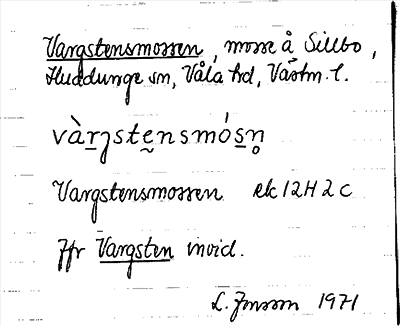 Vargstensmossen, mosse å Sillbo,
Huddunge sn, Våla hd, Västm. l.
vàrgstensmósn
Vargstensmossen ek 12H 2c
Jfr Vargsten invid.
L. Jonsson 1971